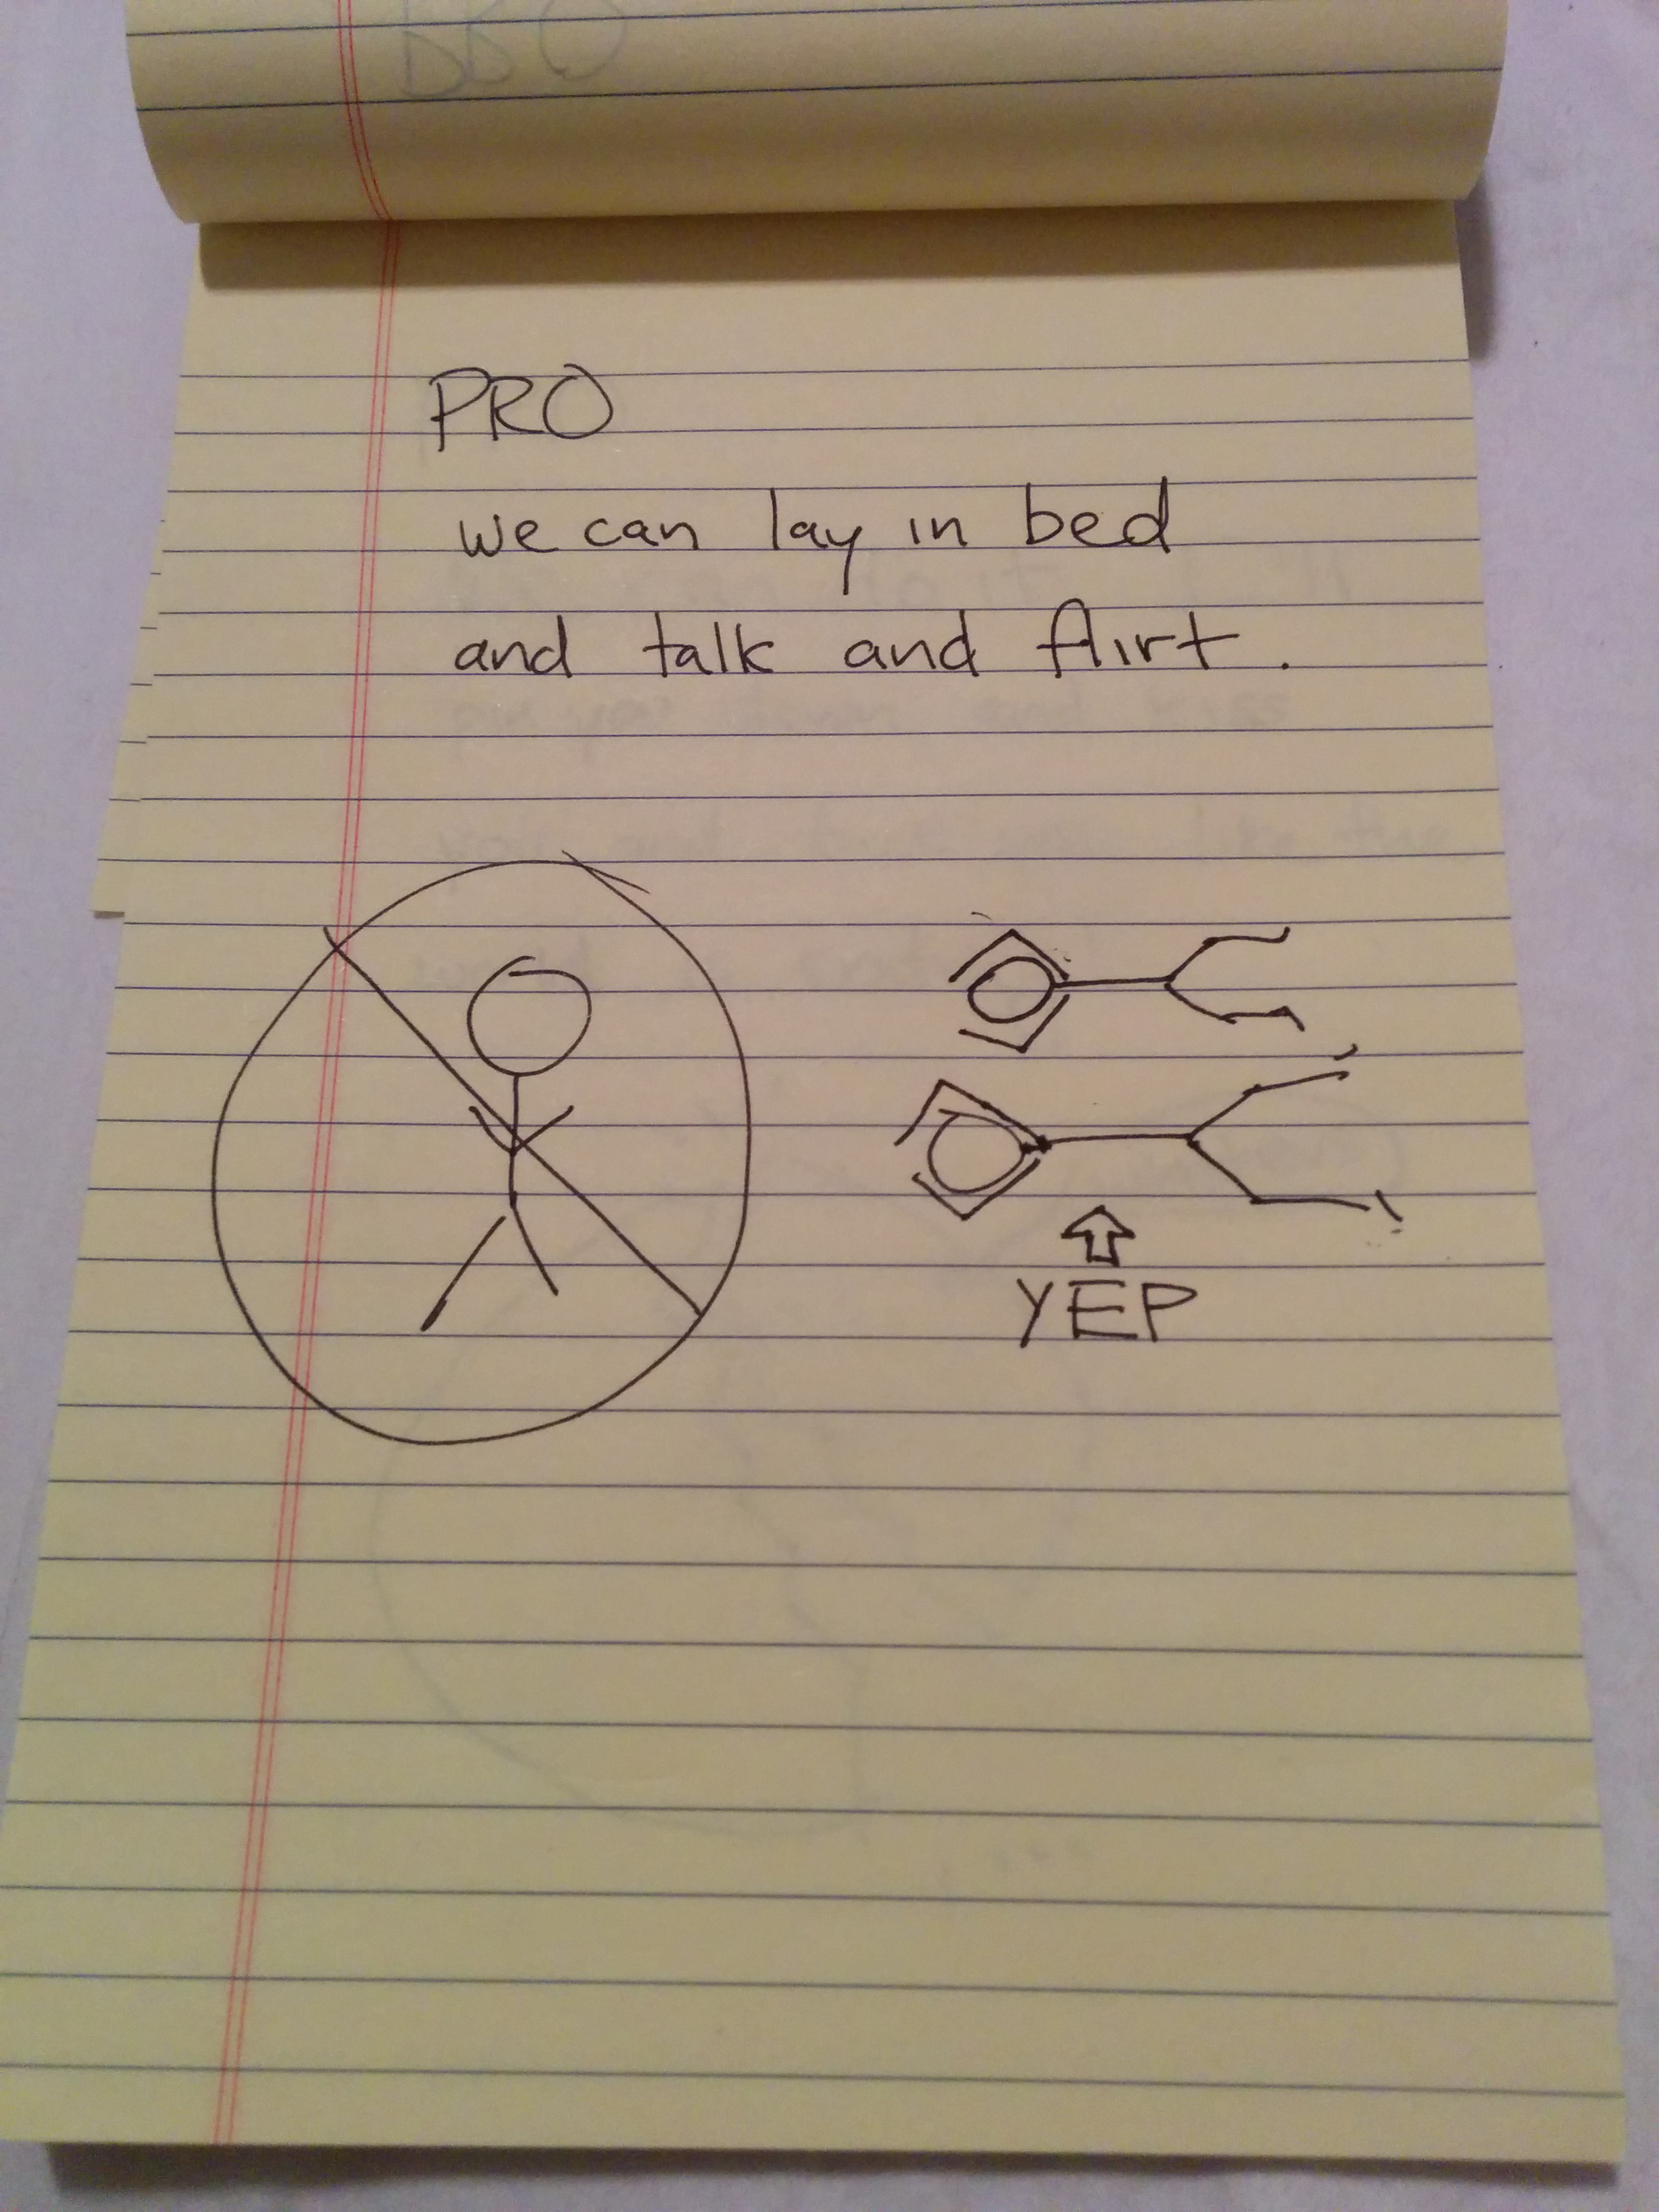 PRO
we can lay in bed
and talk and flirt.
YEP